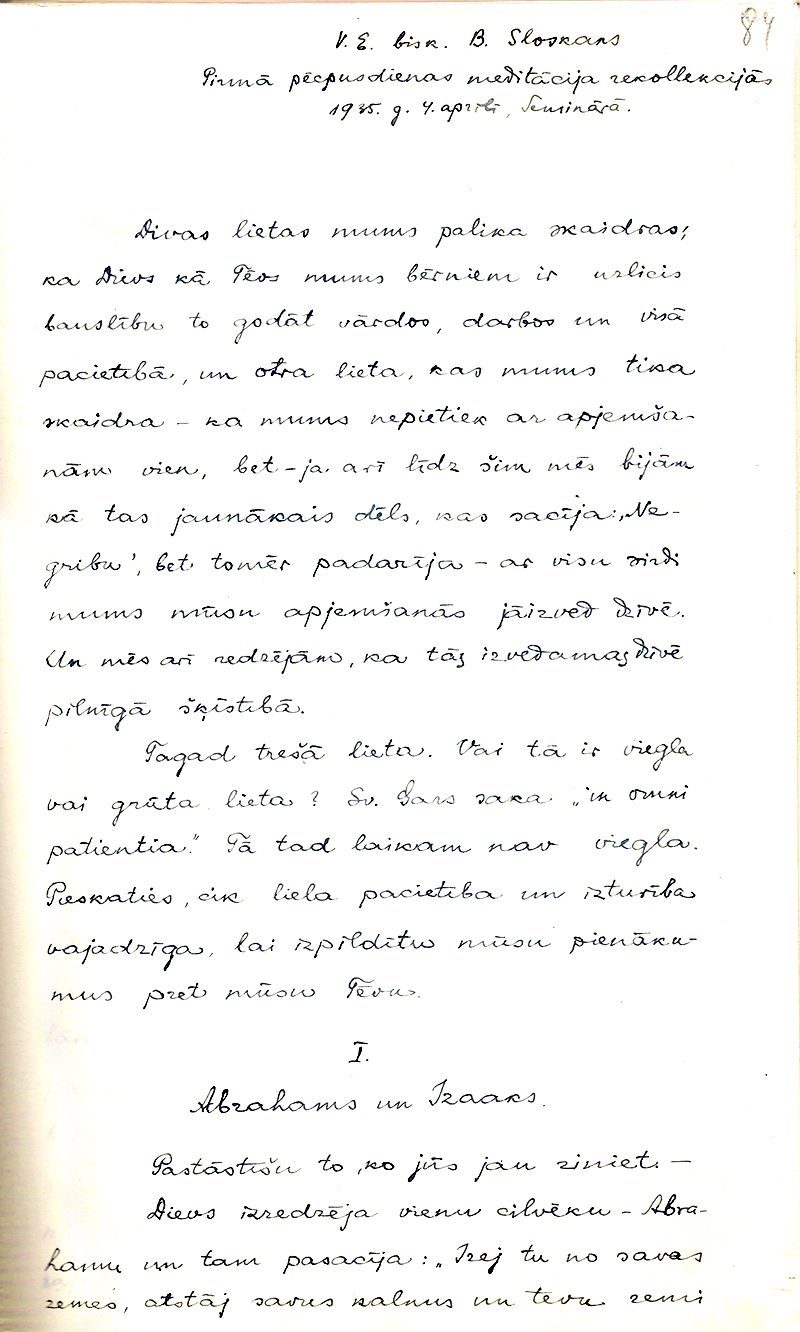 84
V. E. bisk. B. Sloskans
Pirmā pēcpusdienas meditācija rekollekcijās
1935. g. 4. aprīlī, Seminārā.
Divas lietas mums palika skaidras;
ka Dievs kā Tēvs mums bērniem ir uzlicis
bauslību to godāt vārdos, darbos un visā
pacietībā, un otra lieta, kas mums tika
skaidra – ka mums nepietiek ar apjemša-
nām vien, bet – ja arī līdz šim mēs bijām
kā tas jaunākais dēls, kas sacīja: „Ne-
gribu", bet tomēr padarīja – ar visu sirdi
mums mūsu apjemšanās jāizved dzīvē.
Un mēs arī redzējām, ka tās izvedamas dzīvē
pilnīgā šķīstībā.
Tagad trešā lieta. Vai tā ir viegla
vai grūta lieta? Sv. Gars saka „in omni
patientia." Tā tad laikam nav viegla.
Pieskaties, cik liela pacietība un izturība
vajadzīga, lai izpildītu mūsu pienāku-
mus pret mūsu Tēvu.
I.
Abrahams un Izaaks.
Pastāstīšu to, ko jūs jau ziniet. –
Dievs izredzēja vienu cilvēku – Abra-
hamu un tam pasacīja: „Izej tu no savas
zemes, atstāj savus kalnus un tēvu zemi